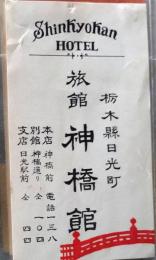 Shinkyokan
HOTEL
栃木縣日光町
旅館 神橋館
本店 神橋前 電話一三八
別館 神橋通り 仝 一〇四
支店 日光駅前 仝 四四